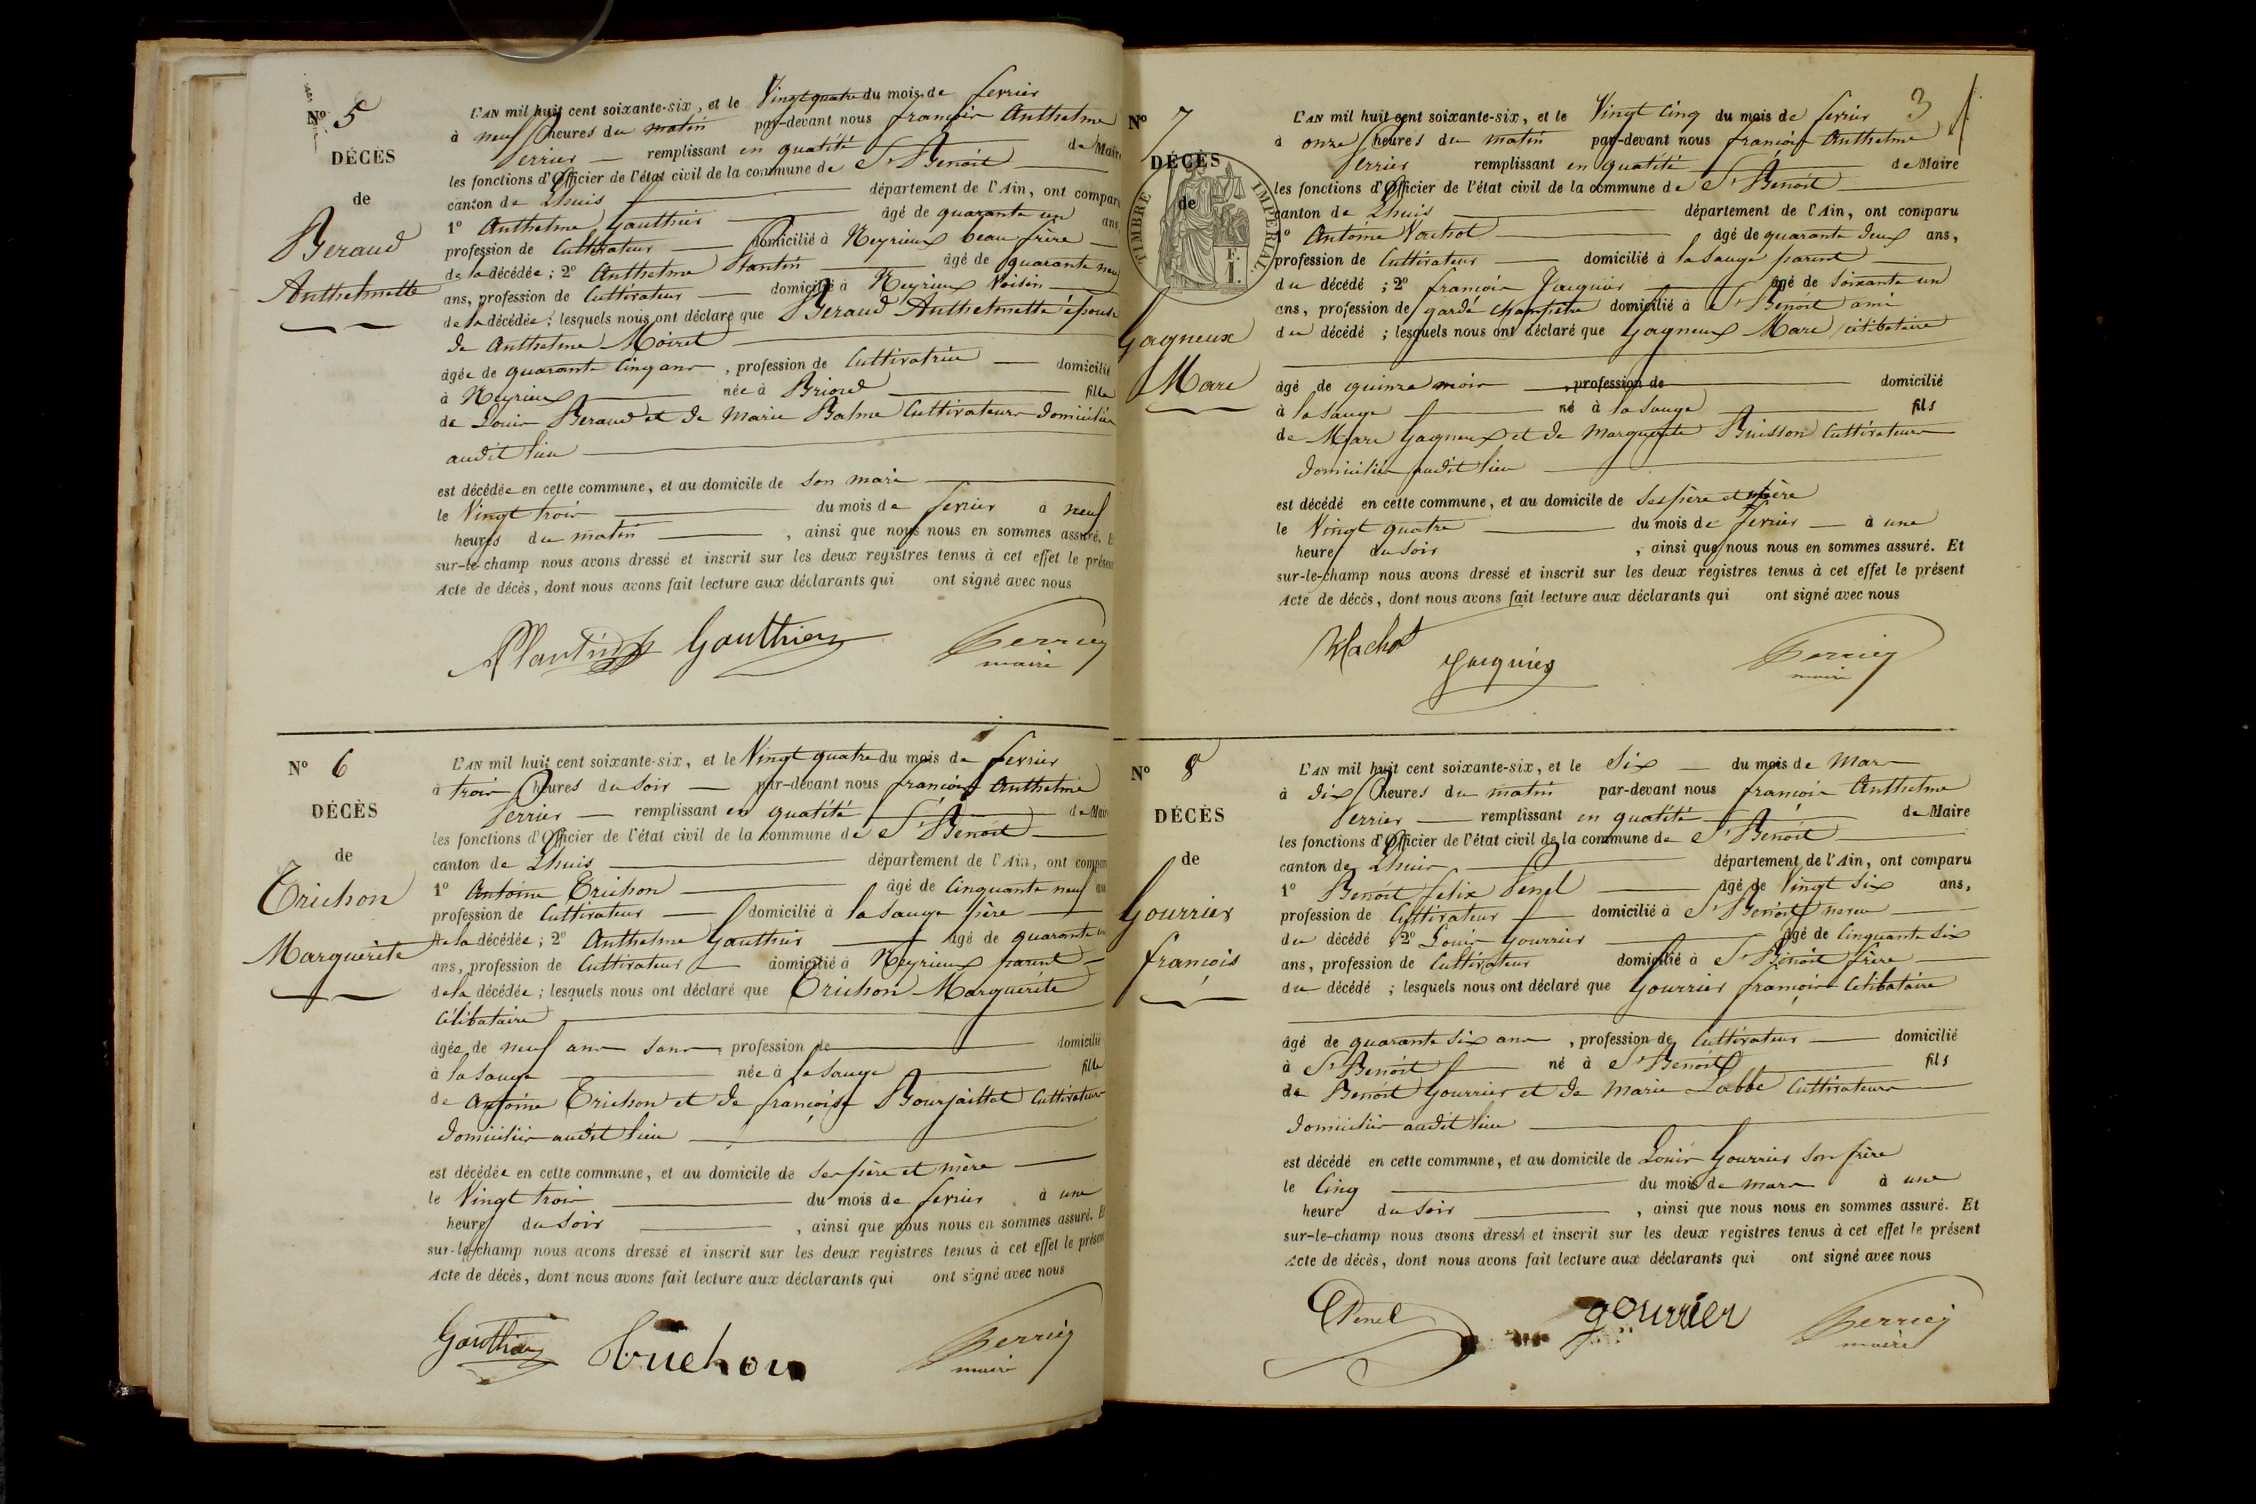 Nº 5
DÉCÈS
de
Beraud
Anthelmette
L'AN mil huit cent soixante-six, et le Vingt quatre du mois de fevrier
à neuf heures du matin par-devant nous françois Anthelme
Perrier remplissant en qualité de Maire
les fonctions d'Officier de l'état civil de la commune de St Benoit
canton de Lhuis département de l'Ain, ont comparu
1º Anthelme Gauthier âgé de quarante un ans
profession de Cultivateur domicilié à Neyrieux beau frère
de la décédée; 2º Anthelme Plantin âgé de quarante neuf
ans, profession de Cultivateur domicilié à Neyrieux Voisin
de la décédée; lesquels nous ont déclaré que Beraud Anthelmette épouse
de Anthelme Moiret
âgée de quarante cinq ans, profession de Cultivatrice domicilié
à Neyrieux née à Briord fille
de Louis Beraud et de Marie Balme Cultivateurs domiciliés
audit lieu
est décédée en cette commune, et au domicile de son mari
le Vingt trois du mois de fevrier à neuf
heures du matin, ainsi que nous nous en sommes assuré. Et
sur-le-champ nous avons dressé et inscrit sur les deux registres tenus à cet effet le présent
Acte de décès, dont nous avons fait lecture aux déclarants qui ont signé avec nous
Plantin Gauthier Perrier
maire
Nº 6
DÉCÈS
de
Trichon
Marguerite
L'AN mil huit cent soixante-six, et le Vingt quatre du mois de fevrier
à trois heures du soir par-devant nous françois Anthelme
Perrier remplissant en qualité de Maire
les fonctions d'Officier de l'état civil de la commune de St Benoit
canton de Lhuis département de l'Ain, ont comparu
1º Antoine Trichon âgé de Cinquante neuf ans
profession de Cultivateur domicilié à la Sauge père
de la décédée; 2º Anthelme Gauthier âgé de quarante un
ans, profession de Cultivateur domicilié à Neyrieux parent
de la décédée; lesquels nous ont déclaré que Trichon Marguerite
Célibataire
âgée de neuf ans sans, profession de domicilié
à la Sauge née à la Sauge fille
de Antoine Trichon et de françoise Bourjaillat Cultivateurs
domiciliés audit lieu
est décédée en cette commune, et au domicile de ses père et mère
le Vingt trois du mois de fevrier à une
heure du soir, ainsi que nous nous en sommes assuré. Et
sur-le-champ nous avons dressé et inscrit sur les deux registres tenus à cet effet le présent
Acte de décès, dont nous avons fait lecture aux déclarants qui ont signé avec nous
Gauthier Trichon Perrier
maire
3
Nº 7
DÉCÈS
de
TIMBRE IMPÉRIAL
Gagneux
Marc
L'AN mil huit cent soixante-six, et le Vingt Cinq du mois de fevrier
à onze heures du matin par-devant nous françois Anthelme
Perrier remplissant en qualité de Maire
les fonctions d'Officier de l'état civil de la commune de St Benoit
canton de Lhuis département de l'Ain, ont comparu
1º Antoine Vachot âgé de quarante deux ans,
profession de Cultivateur domicilié à la Sauge parent
du décédé; 2º françois Jacquier âgé de soixante un
ans, profession de garde champêtre domicilié à St Benoit ami
du décédé; lesquels nous ont déclaré que Gagneux Marc célibataire
âgé de quinze mois, profession de domicilié
à la Sauge né à la Sauge fils
de Marc Gagneux et de Marguerite Buisson Cultivateurs
domiciliés audit lieu
est décédé en cette commune, et au domicile de ses père et mère
le Vingt quatre du mois de fevrier à une
heure du soir, ainsi que nous nous en sommes assuré. Et
sur-le-champ nous avons dressé et inscrit sur les deux registres tenus à cet effet le présent
Acte de décès, dont nous avons fait lecture aux déclarants qui ont signé avec nous
Vachot Jacquier Perrier
maire
Nº 8
DÉCÈS
de
Gourrier
françois
L'AN mil huit cent soixante-six, et le Six du mois de Mars
à dix heures du matin par-devant nous françois Anthelme
Perrier remplissant en qualité de Maire
les fonctions d'Officier de l'état civil de la commune de St Benoit
canton de Lhuis département de l'Ain, ont comparu
1º Benoit felix Penel âgé de Vingt six ans,
profession de Cultivateur domicilié à St Benoit neveu
du décédé; 2º Louis Gourrier âgé de Cinquante six
ans, profession de Cultivateur domicilié à St Benoit frère
du décédé; lesquels nous ont déclaré que Gourrier françois Célibataire
âgé de quarante six ans, profession de Cultivateur domicilié
à St Benoit né à St Benoit fils
de Benoit Gourrier et de Marie Labbe Cultivateurs
domiciliés audit lieu
est décédé en cette commune, et au domicile de Louis Gourrier son frère
le Cinq du mois de mars à une
heure du soir, ainsi que nous nous en sommes assuré. Et
sur-le-champ nous avons dressé et inscrit sur les deux registres tenus à cet effet le présent
Acte de décès, dont nous avons fait lecture aux déclarants qui ont signé avec nous
Penel gourrier Perrier
maire